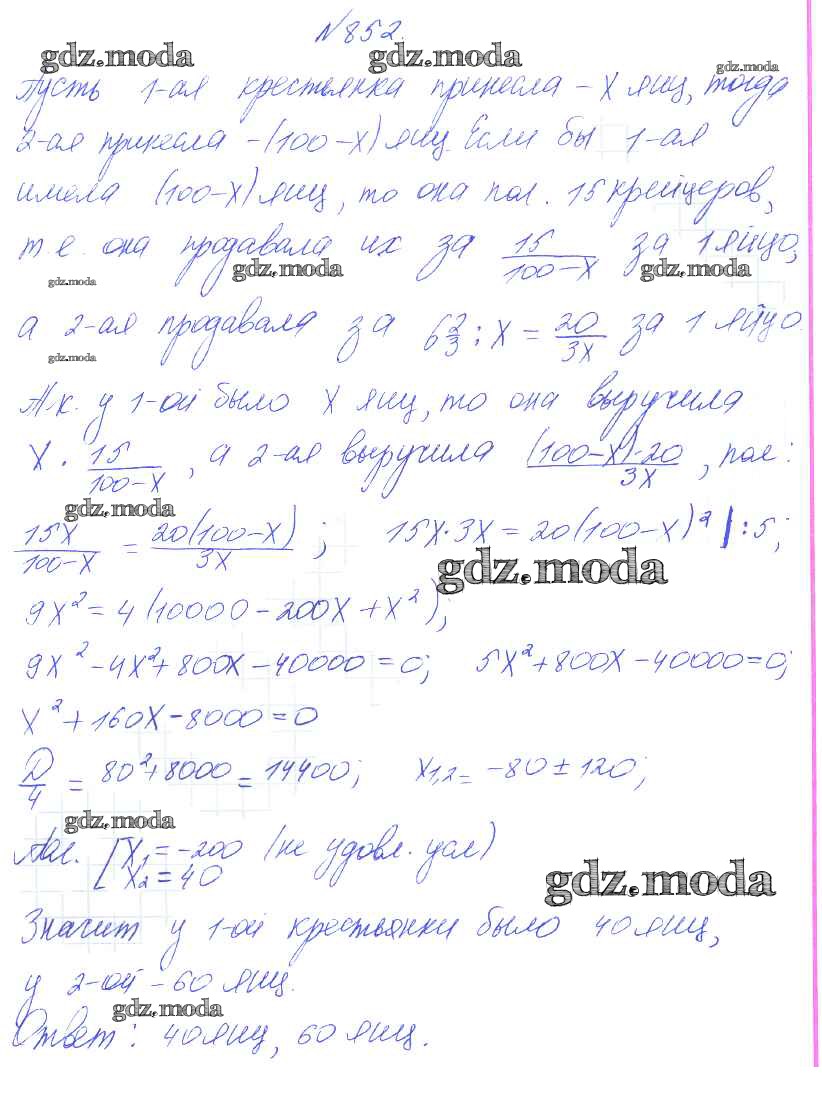 №852.
gdz.moda gdz.moda gdz.moda
Пусть 1-ая крестьянка принесла - X яиц, тогда
2-ая принесла - (100-X) яиц. Если бы 1-ая
имела (100-X) яиц, то она пол. 15 крейцеров,
т.е. она продавала их за 15/(100-X) за 1 яйцо,
gdz.moda gdz.moda gdz.moda
а 2-ая продавала за 6 2/3 : X = 20/3X за 1 яйцо.
gdz.moda
Т.к. у 1-ой было X яиц, то она выручила
X · 15/(100-X), а 2-ая выручила (100-X)·20/3X, пол:
gdz.moda
15X/(100-X) = 20(100-X)/3X ; 15X·3X = 20(100-X)² |:5;
gdz.moda
9X² = 4(10000-200X+X²);
9X²-4X²+800X-40000=0; 5X²+800X-40000=0;
X²+160X-8000=0
D/4 = 80²+8000 = 14400; X1,2 = -80 ± 120;
gdz.moda
Пол. [X₁ = -200 (не удовл. усл)
X₂ = 40
gdz.moda
Значит у 1-ой крестьянки было 40 яиц,
у 2-ой - 60 яиц.
gdz.moda
Ответ: 40 яиц, 60 яиц.